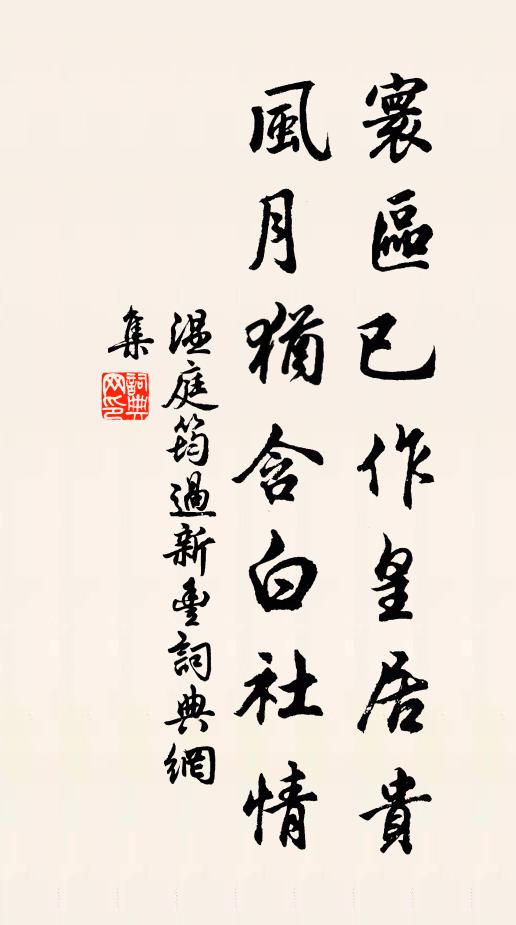 寰區已作皇居貴
風月猶含白社情
温庭筠過新豐詞典網
集
詞典
网印